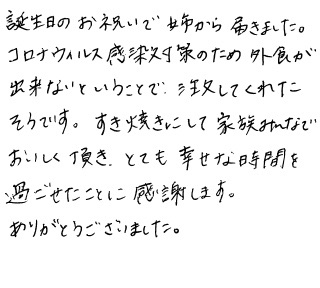 誕生日のお祝いで姉から届きました。
コロナウィルス感染対策のため外食が
出来ないということで、注文してくれた
そうです。すき焼きにして家族みんなで
おいしく頂き、とても幸せな時間を
過ごせたことに感謝します。
ありがとうございました。